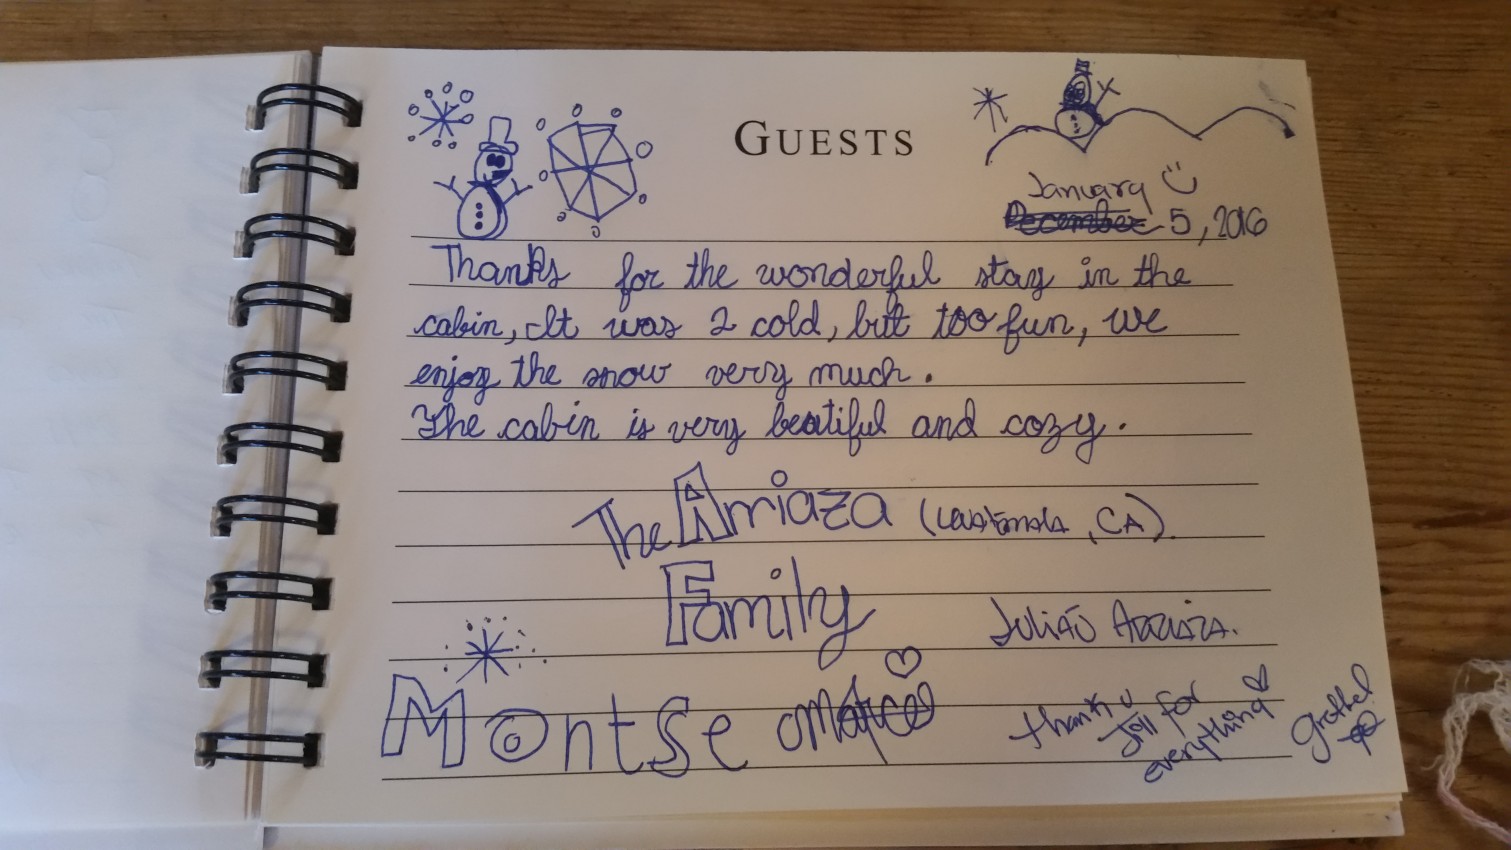 GUESTS
January
December 5, 2016
Thanks for the wonderful stay in the
cabin, It was 2 cold, but too fun, we
enjoy the snow very much.
The cabin is very beatiful and cozy.
The Arriaza (Guatemala, CA).
Family
Julián Arriaza.
Montse
thank u
Jill for
everything
Grethel